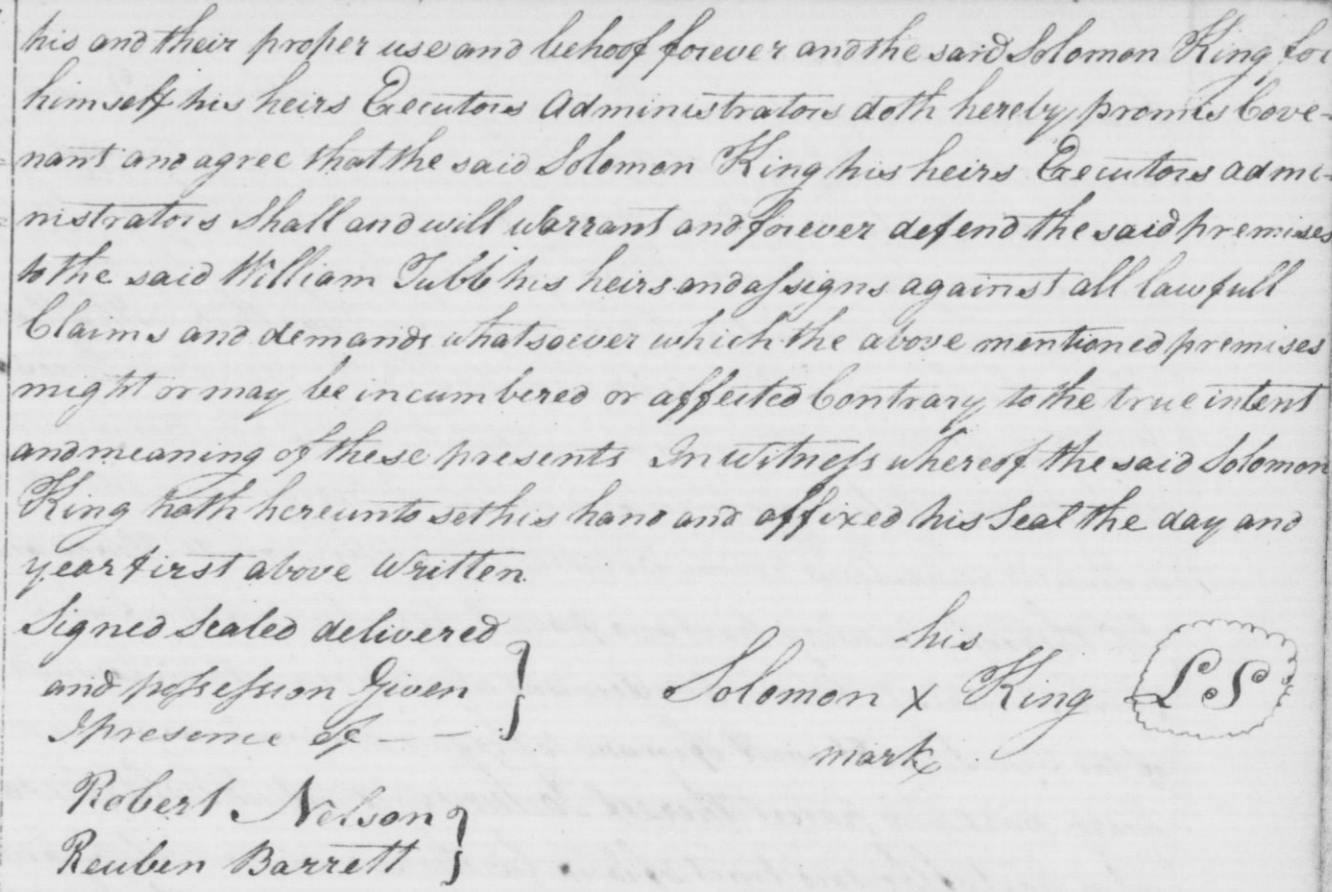 his and their proper use and behoof forever and the said Solomon King for
himself his heirs Executors Administrators doth hereby promis Cove-
nant and agree that the said Solomon King his heirs Executors admi-
nistrators Shall and will warrant and forever defend the said premises
to the said William Tubb his heirs and assigns against all lawfull
Claims and demands whatsoever which the above mentioned premises
might or may be incumbered or affected Contrary to the true intent
and meaning of these presents In witness whereof the said Solomon
King hath hereunto set his hand and affixed his Seal the day and
year first above Written
Signed Sealed delivered
and possession Given
I presence of - -
his
Solomon x King LS
mark
Robert Nelson
Reuben Barrett